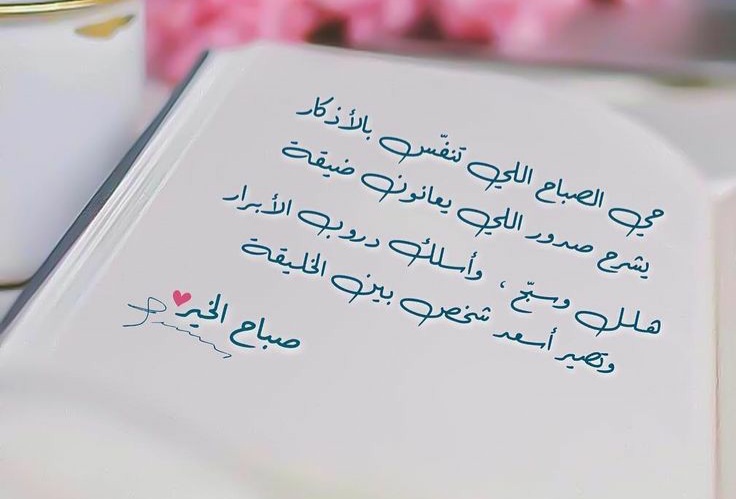 حي الصباح اللي تنفّس بالأذكار
يشرح صدور اللي يعانون ضيقة
هلل وسبّح ، وأسلك دروب الأبرار
وتصير أسعد شخص بين الخليقة
صباح الخير